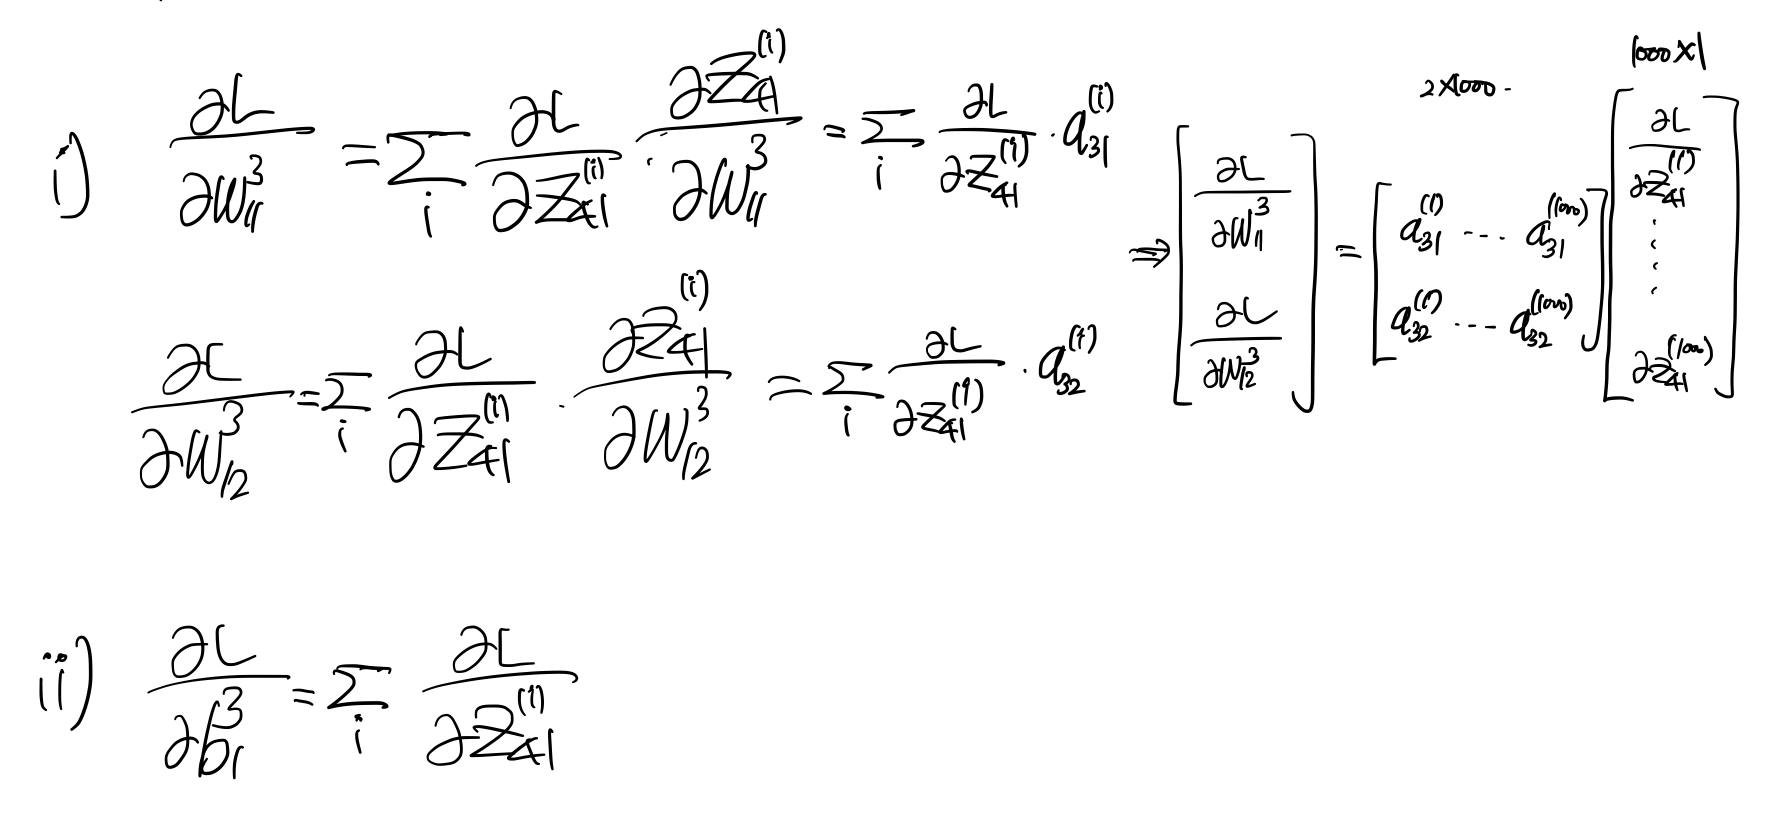 i) ∂L/∂W³₁₁ = Σᵢ ∂L/∂Z₄₁⁽ⁱ⁾ · ∂Z₄₁⁽ⁱ⁾/∂W³₁₁ = Σᵢ ∂L/∂Z₄₁⁽ⁱ⁾ · a₃₁⁽ⁱ⁾
∂L/∂W³₁₂ = Σᵢ ∂L/∂Z₄₁⁽ⁱ⁾ · ∂Z₄₁⁽ⁱ⁾/∂W³₁₂ = Σᵢ ∂L/∂Z₄₁⁽ⁱ⁾ · a₃₂⁽ⁱ⁾
2×1000 · 1000×1
⇒ [∂L/∂W³₁₁ ; ∂L/∂W³₁₂] = [a₃₁⁽¹⁾ ---- a₃₁⁽¹⁰⁰⁰⁾ ; a₃₂⁽¹⁾ ---- a₃₂⁽¹⁰⁰⁰⁾] [∂L/∂Z₄₁⁽¹⁾ ⋮ ∂Z₄₁⁽¹⁰⁰⁰⁾]
ii) ∂L/∂b³₁ = Σᵢ ∂L/∂Z₄₁⁽ⁱ⁾